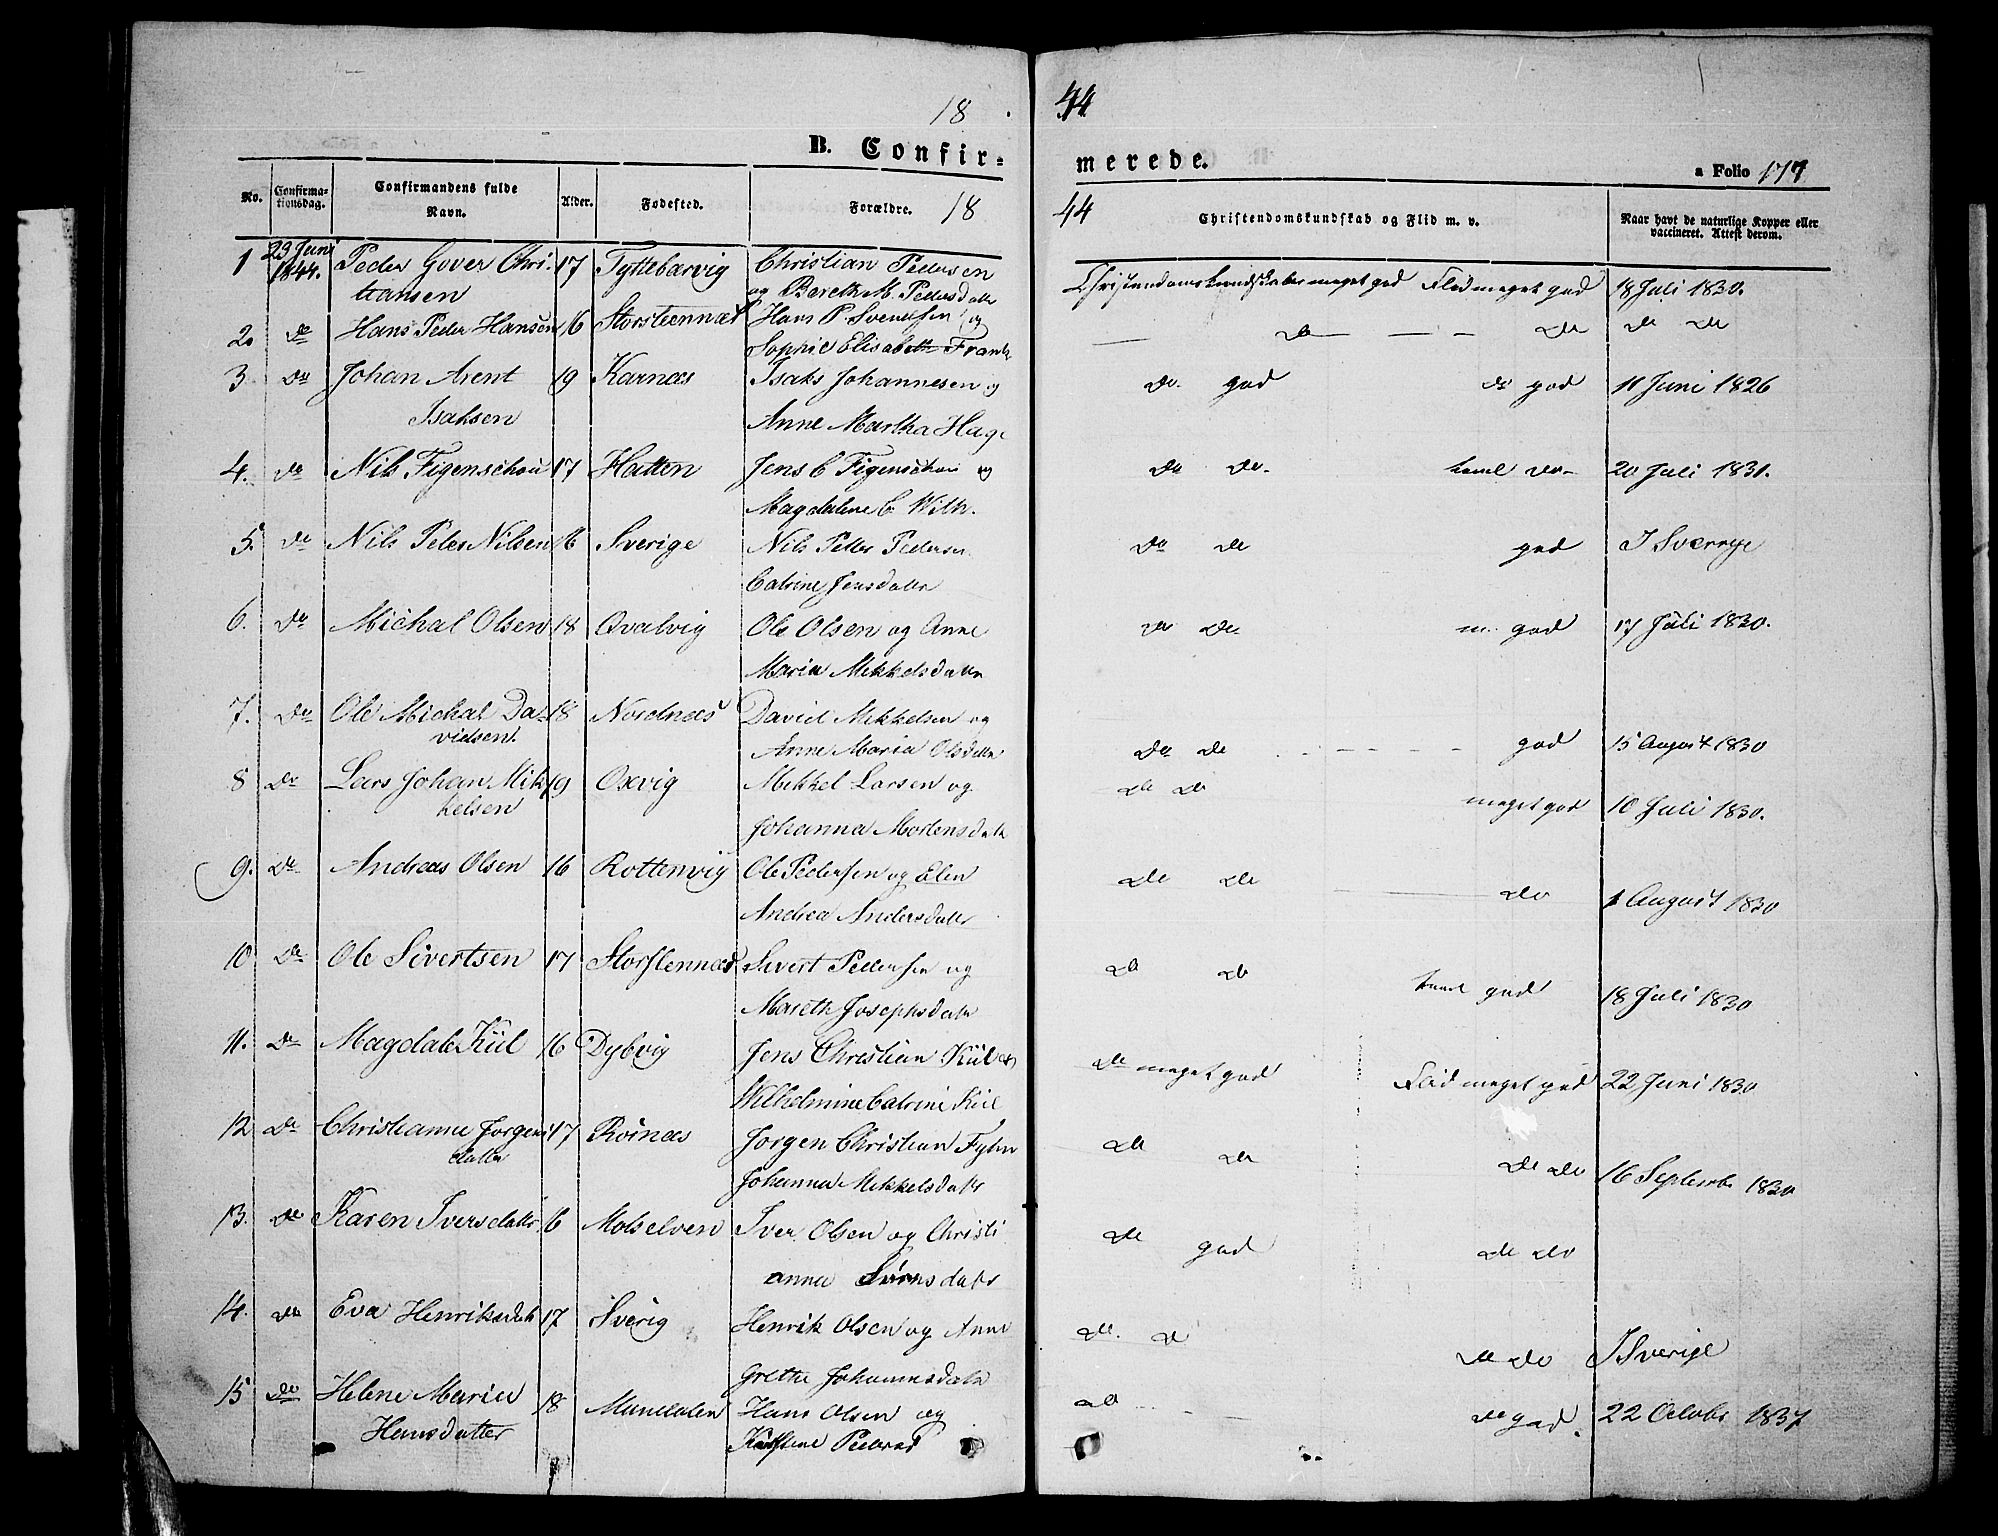 18
44
B. Confir-
merede.
a Folio 177
No.
Confirma-
tionsdag.
Confirmandens fulde
Navn.
Alder.
Fødested.
Forældre.
18
44
Christendomskundskab og Flid m. v.
Naar havt de naturlige Kopper eller
vaccineret. Attest derom.
1 23 Juni Peder Gover Chri- 17 Tyttebærvig Christian Pedersen Christendomskundskaber meget god Flid meget god 18 Juli 1830.
1844. tiansen og Bereth M. Pedersdatr
2. do Hans Peder Hansen 16 Storsteennæs Hans P. Svendsen og do do do do
Sophie Elisabeth Frank
3. do Johan Arent 19 Karnæs Isaks Johannesen og do. god do god 11 Juni 1826
Isaksen Anne Martha Hage
4. do Nils Figenschou 17 Hatten Jens C Figenschou og do do- do- 20 Juli 1831.
Magdalene C With.
5. do Nils Peter Nilsen 16 Sverige Nils Peder Pedersen do do god I Sverrye
Catrine Jensdatr
6. do Michal Olsen 18 Qvalvig Ole Olsen og Anne do do m. god 17 Juli 1830.
Maria Mikkelsdattr
7. do Ole Michal Da- 18 Nordnæs David Mikkelsen og
vidsen. Anne Maria Olsdattr do do god 15 August 1830
8 do Lars Johan Mik 19 Oxvig Mikkel Larsen og do do
kelsen Johanna Mortensdatr meget god 10 Juli 1830.
9. do Andreas Olsen 16 Rottenvig Ole Pedersen og Elen do do do 1 August 1830
Andrea Andersdatr
10 do Ole Sivertsen 17 Storstennæs Sivert Pedersen og do do god 18 Juli 1830
Mareth Josephsdatr
11. do Magdale Kiil 16 Dybvig Jens Christian Kiil og do meget god Flid meget god 22 Juni 1830
Wilhelmine Catrine Kiil
12 do Christianne Jorgens 17 Roinæs Jorgen Christian Fyhn do do do do 16 Septemb. 1830
datter Johanna Mikkelsdatr
13. do Karen Iversdatr. 16 Molselven Iver Olsen og Christi do god do do
anna Sørnsdatr
14. do Eva Henriksdatr 17 Sverig Henrik Olsen og Anne do. d do do I Sverige
Grethe Johannesdatr
15 do Helene Maria 18 Manddalen Hans Olsen og do do god. 22 Octobr 1837
Hansdatter Kirstine Pedersd